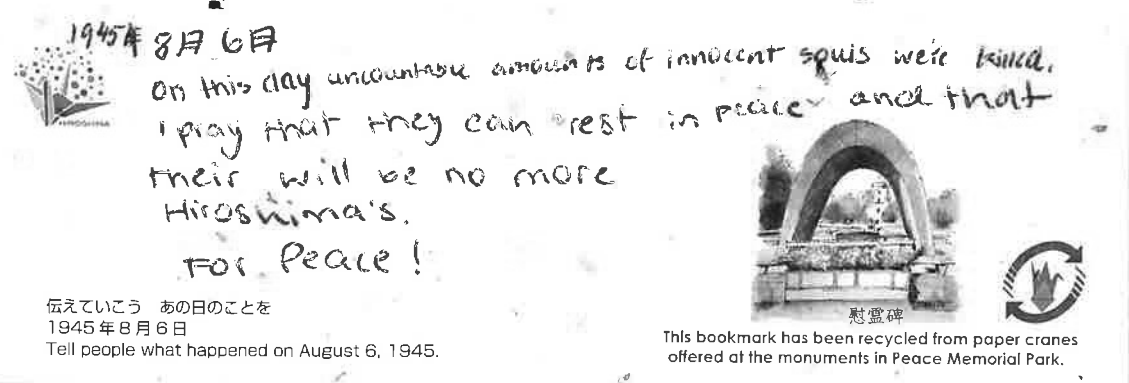 1945年 8月6日
On this day uncountable amounts of innocent souls we're killed.
I pray that they can rest in peace and that
their will be no more
Hiroshima's.
For Peace!
HIROSHIMA
慰霊碑
伝えていこう あの日のことを
1945年8月6日
Tell people what happened on August 6, 1945.
This bookmark has been recycled from paper cranes
offered at the monuments in Peace Memorial Park.